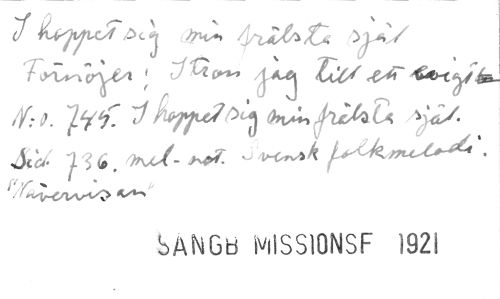 I hoppet sig min frälsta själ
Förnöjer; I tron jag till ett evigt
N:o. 745. I hoppet sig min frälsta själ.
Sid. 736. mel-not. Svensk folkmelodi.
"Nävervisan"
SANGB MISSIONSF 1921